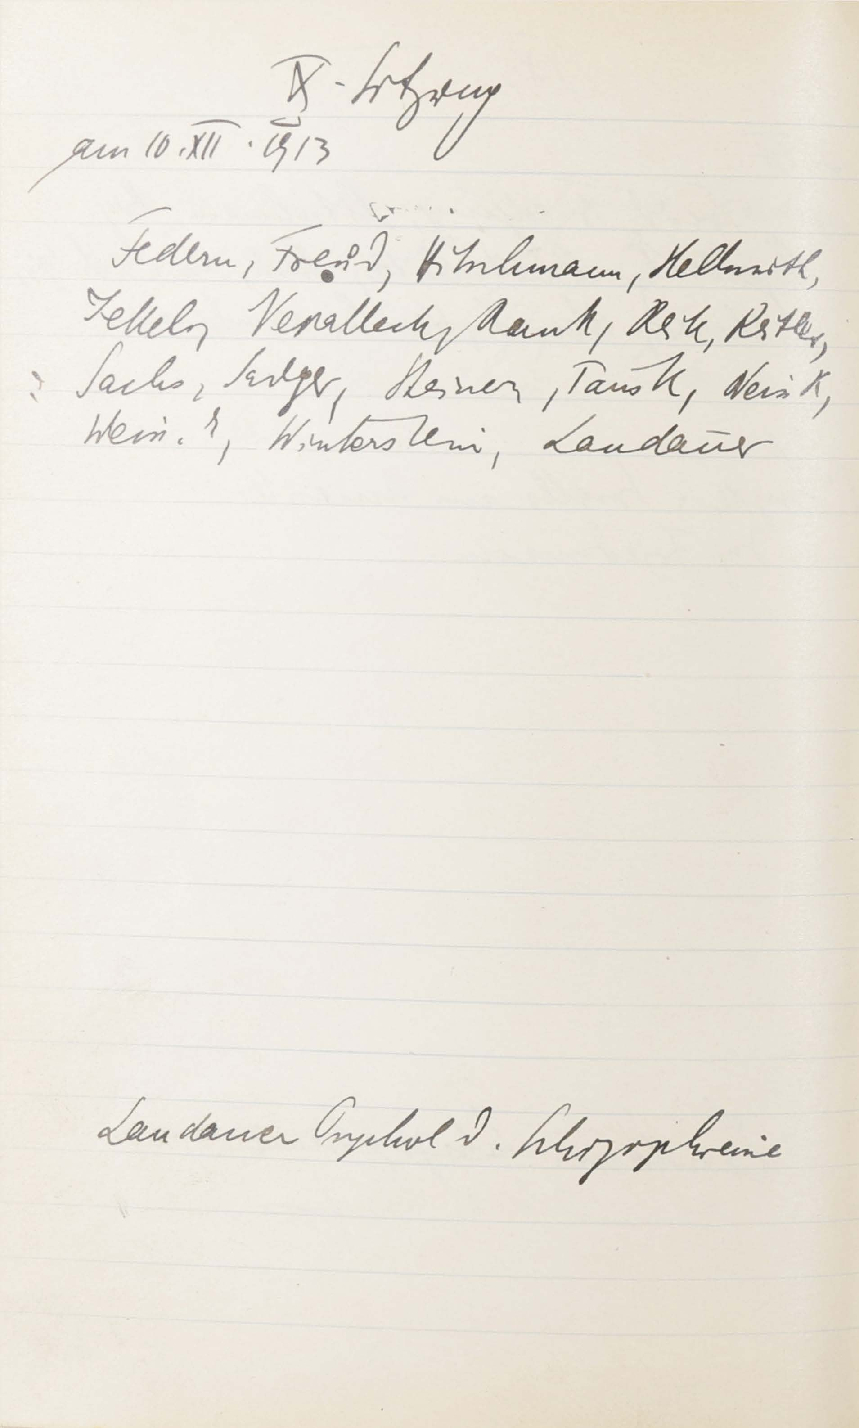 IX. Sitzung
am 10. XII. 1913
Federn, Freud, Hitschmann, Hellmuth,
Jekels, Rank, Reik, Reitler,
Sachs, Sadger, Steiner, Tausk, Weiss K,
Weiss. E, Winterstein, Landauer
Landauer Psychol d. Schizophrenie